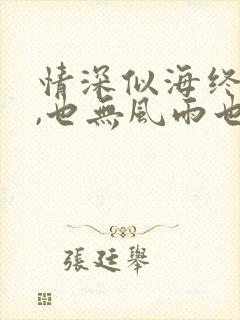 情深似海终
,也無風雨也
張廷舉